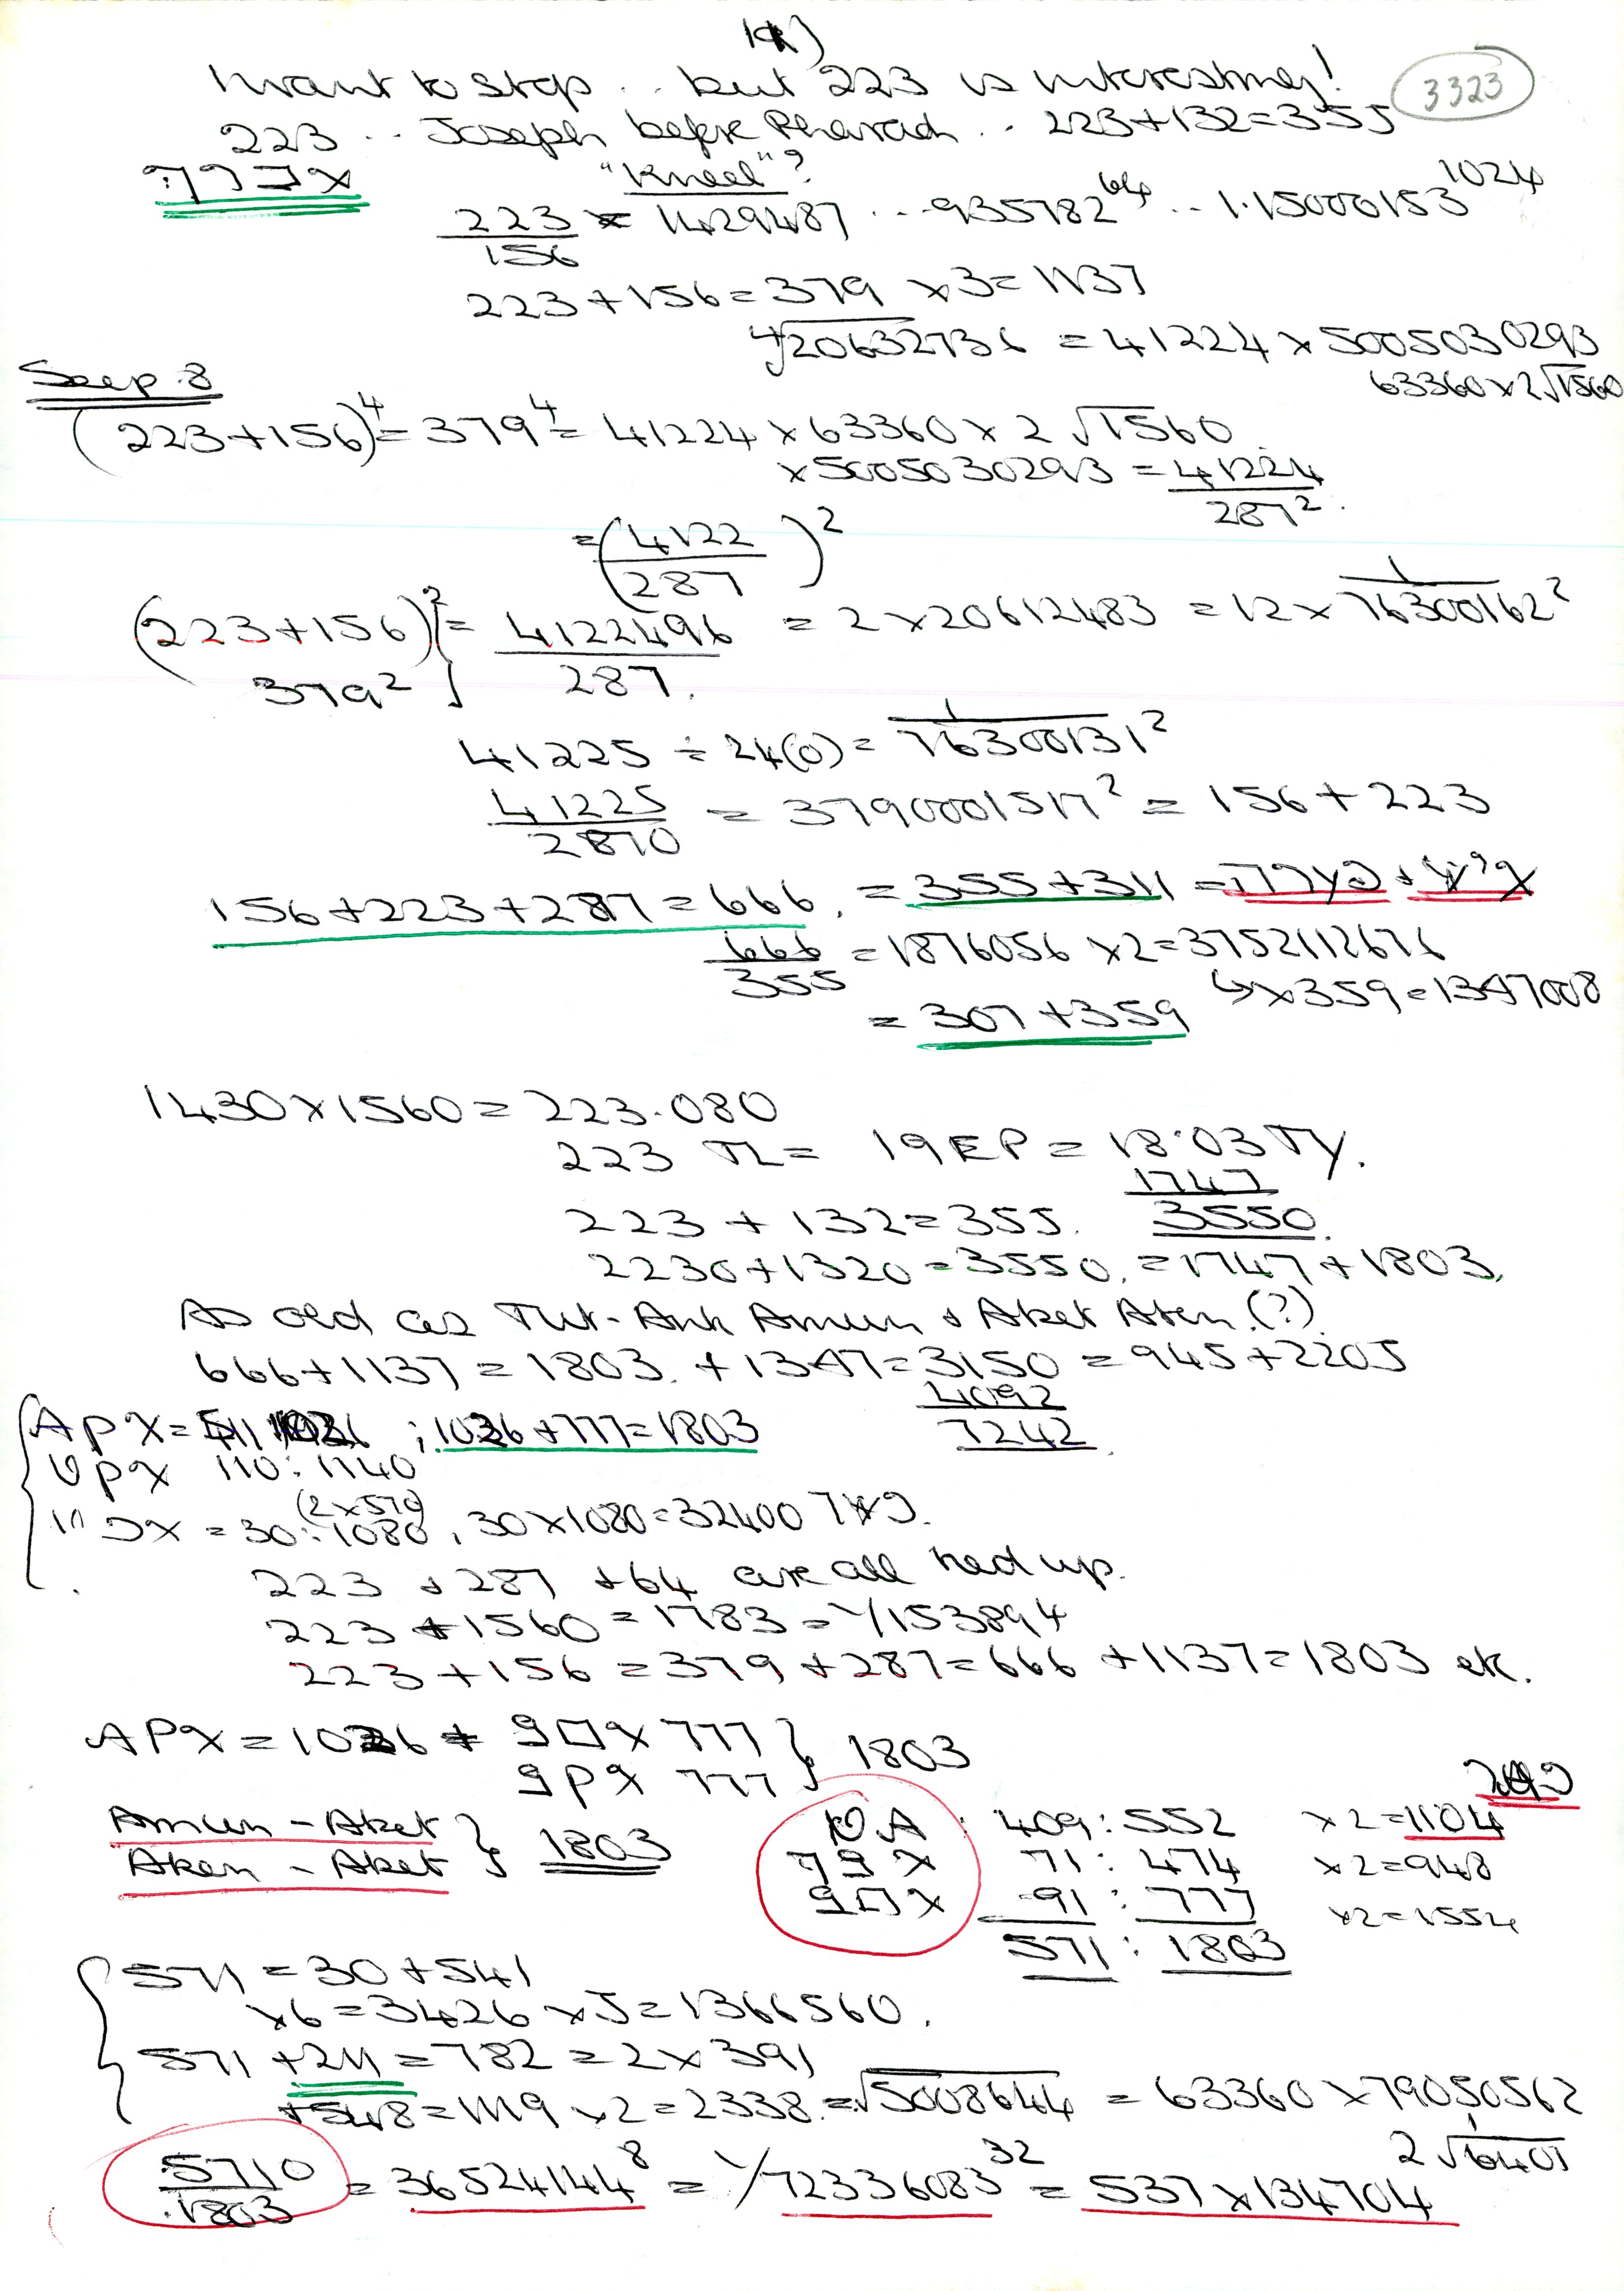 I want to stop .. but 223 is interesting!
3323
223 .. Joseph before Pharaoh .. 223+132=355
"Kneel"?
223/156 = 1429487 .. 935782^64 .. 1.15000153^1024
223+156=379 ×3=1137
4√20632736 = 41224×5005030293
63360×2√1560
See p.8
(223+156)^4=379^4=41224×63360×2√1560
×5005030293 = 41224/287²
=(4122/287)²
(223+156)² = 4122496/287 = 2×20612483 = 12×1/76300162²
379²
41225÷24(0)=1/76300131²
41225/2870 = 3790001517² = 156+223
156+223+287=666. =355+311
666/355 =1876056 ×2=3752112676
×359=1347008
= 307+359
1430×1560=223.080
223 = 19EP = 18.03TY.
1747
223 + 132=355. 3550
2230+1320=3550. =1747+1803.
As old as Tut-Ank Amun & Aket Aten.(?)
666+1137=1803. +1347=3150=945+2205
4092
7242
;1026+777=1803
110:1740
(2×570)
=30:1080, 30×1080=32400
223 + 287 +64 are all tied up.
223+1560=1783=1/153894
223+156=379+287=666+1137=1803 etc.
=1026 + 777 } 1803
777
Amun - Aket } 1803
Aken - Aket
409:552 ×2=1104
71:474 ×2=948
91:777 ×2=1554
571:1803
571=30+541
×6=3426×5=1366560.
571+211=782=2×391
+548=1119 ×2=2338.=√5008644 = 63360×79050562
2√6401
5710/1803 = 36524144^8 = 1/72336083^32 = 537×134704